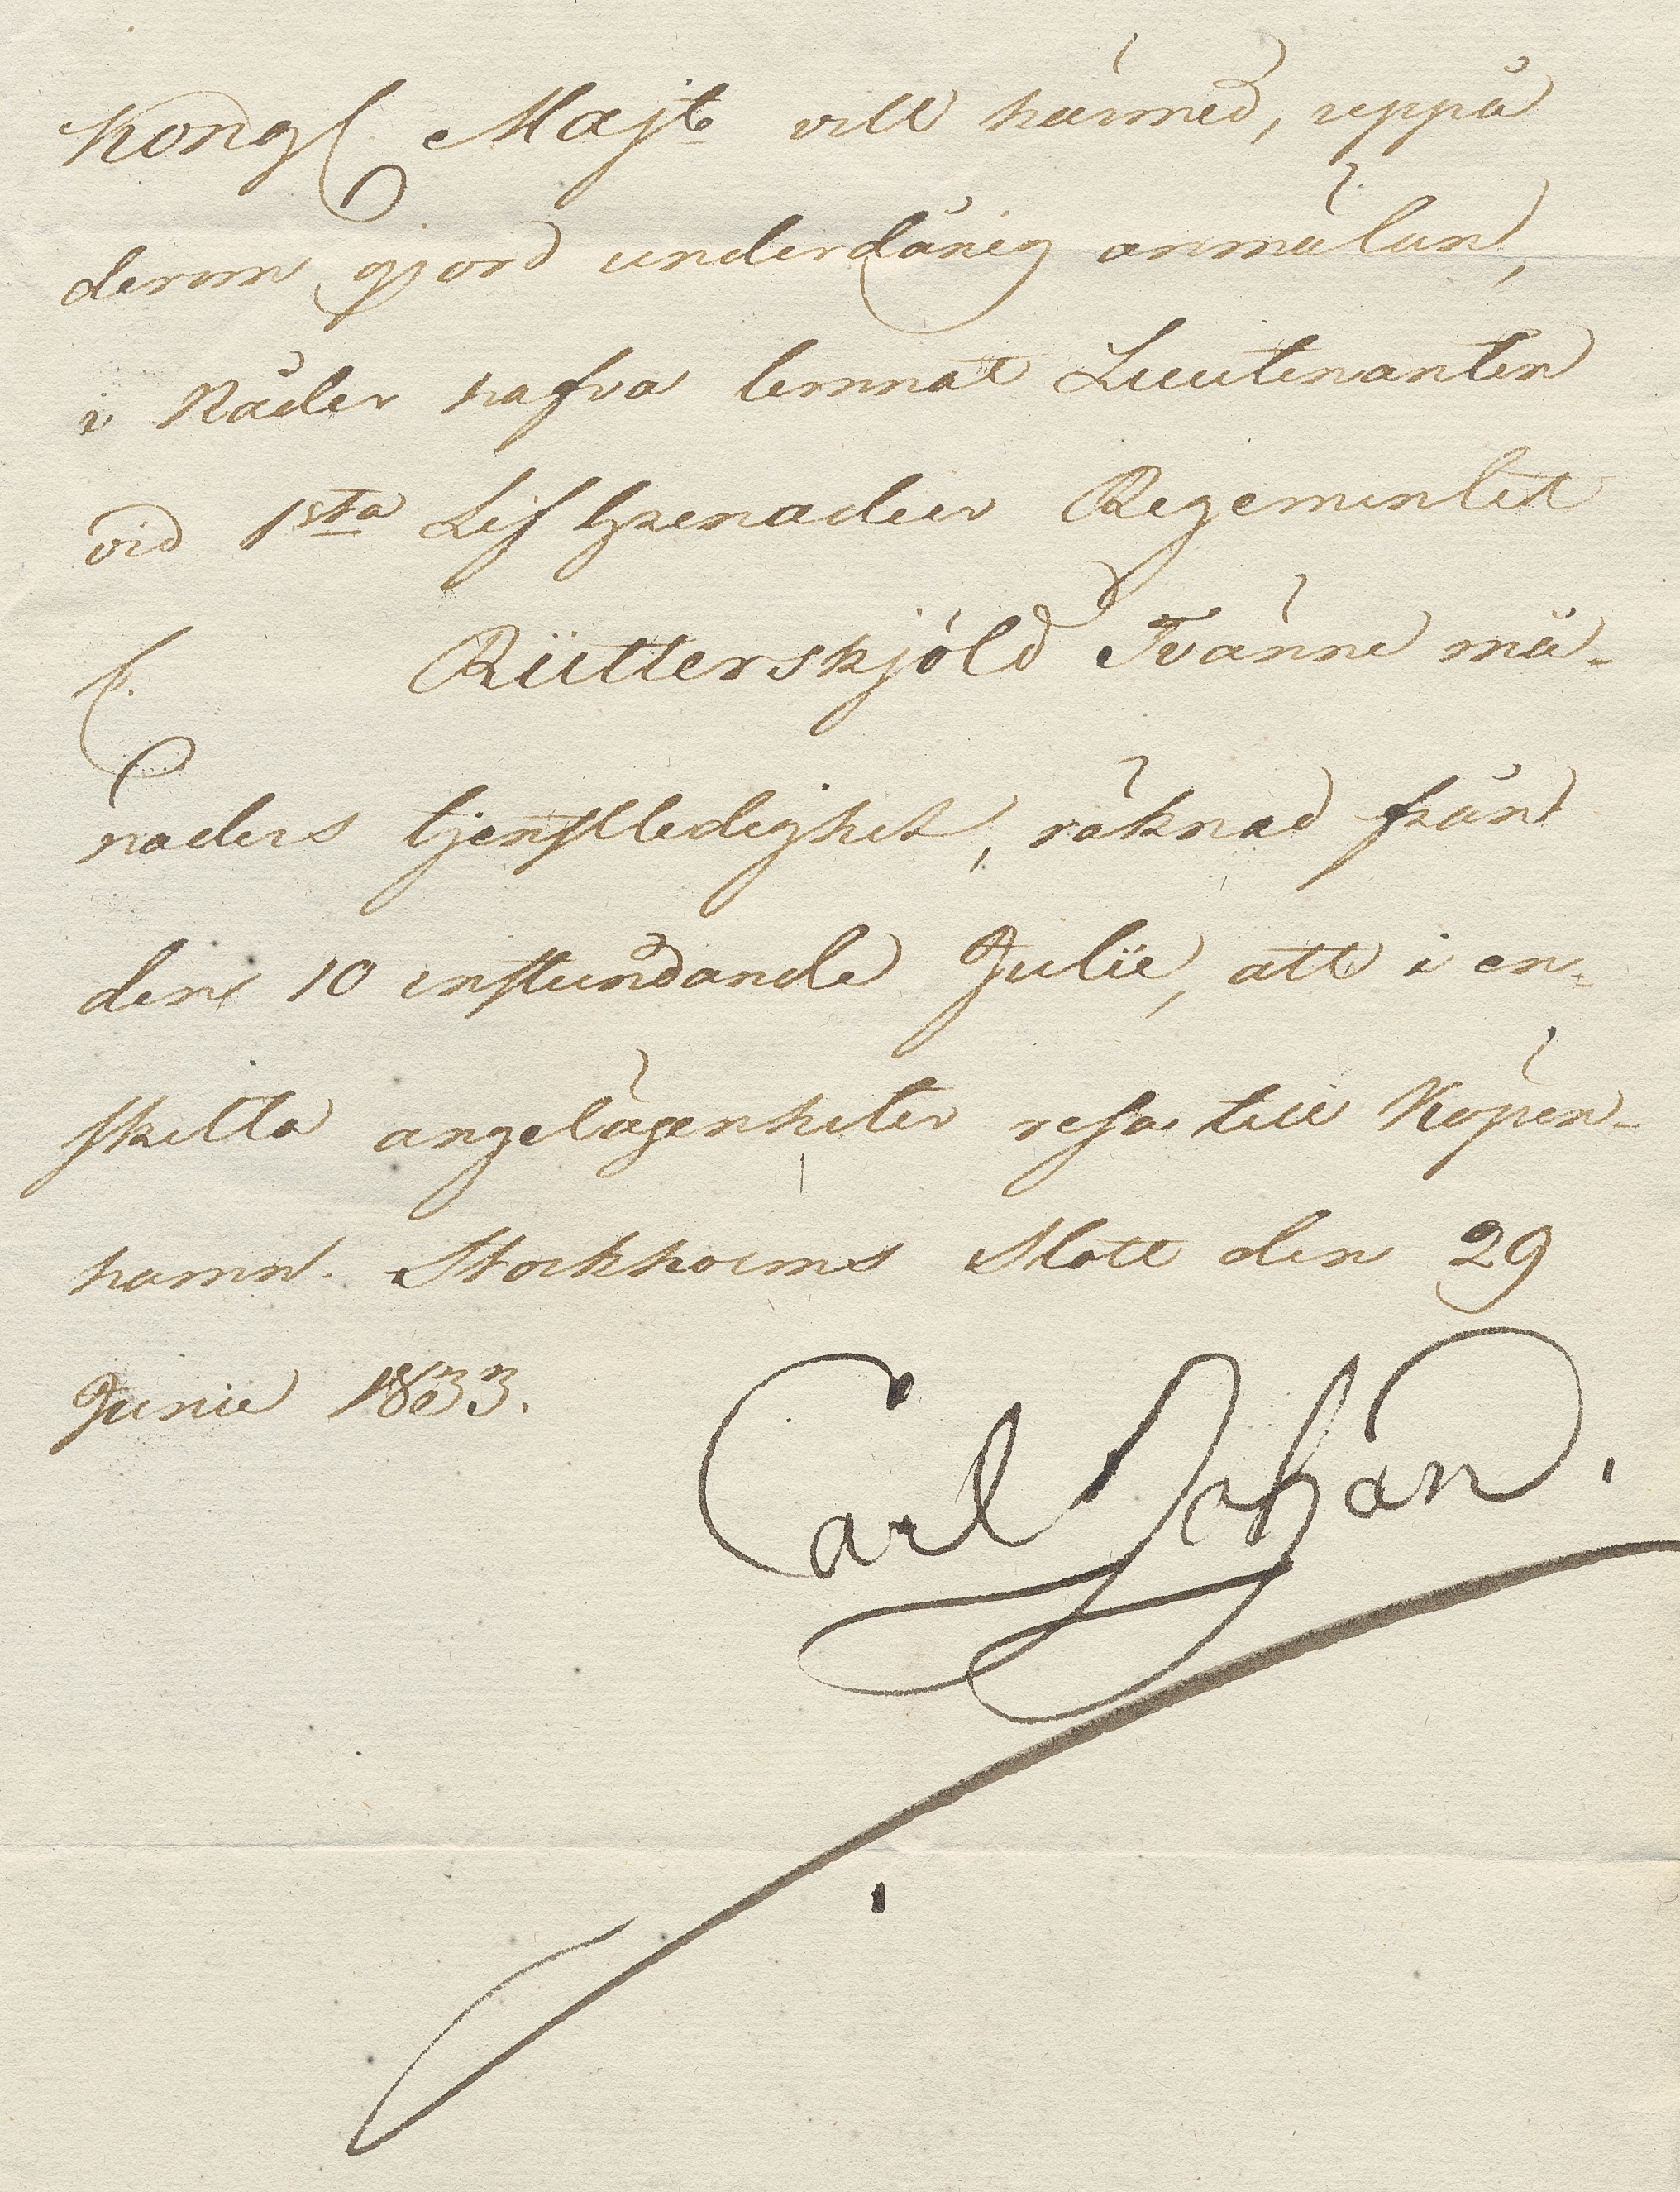 Kongl Majt vill härmed, uppå
derom gjord underdånig anmälan,
i Nåder hafva lemnat Lieutenanten
vid 1sta Lif Grenadier Regementet
f. Rütterskjöld Tvänne må-
naders tjenstledighet, räknad från
den 10 instundande Julii, att i en-
skilta angelägenheter resa till Köpen-
hamn. Stockholms Slott den 29
Junii 1833.
Carl Johan.